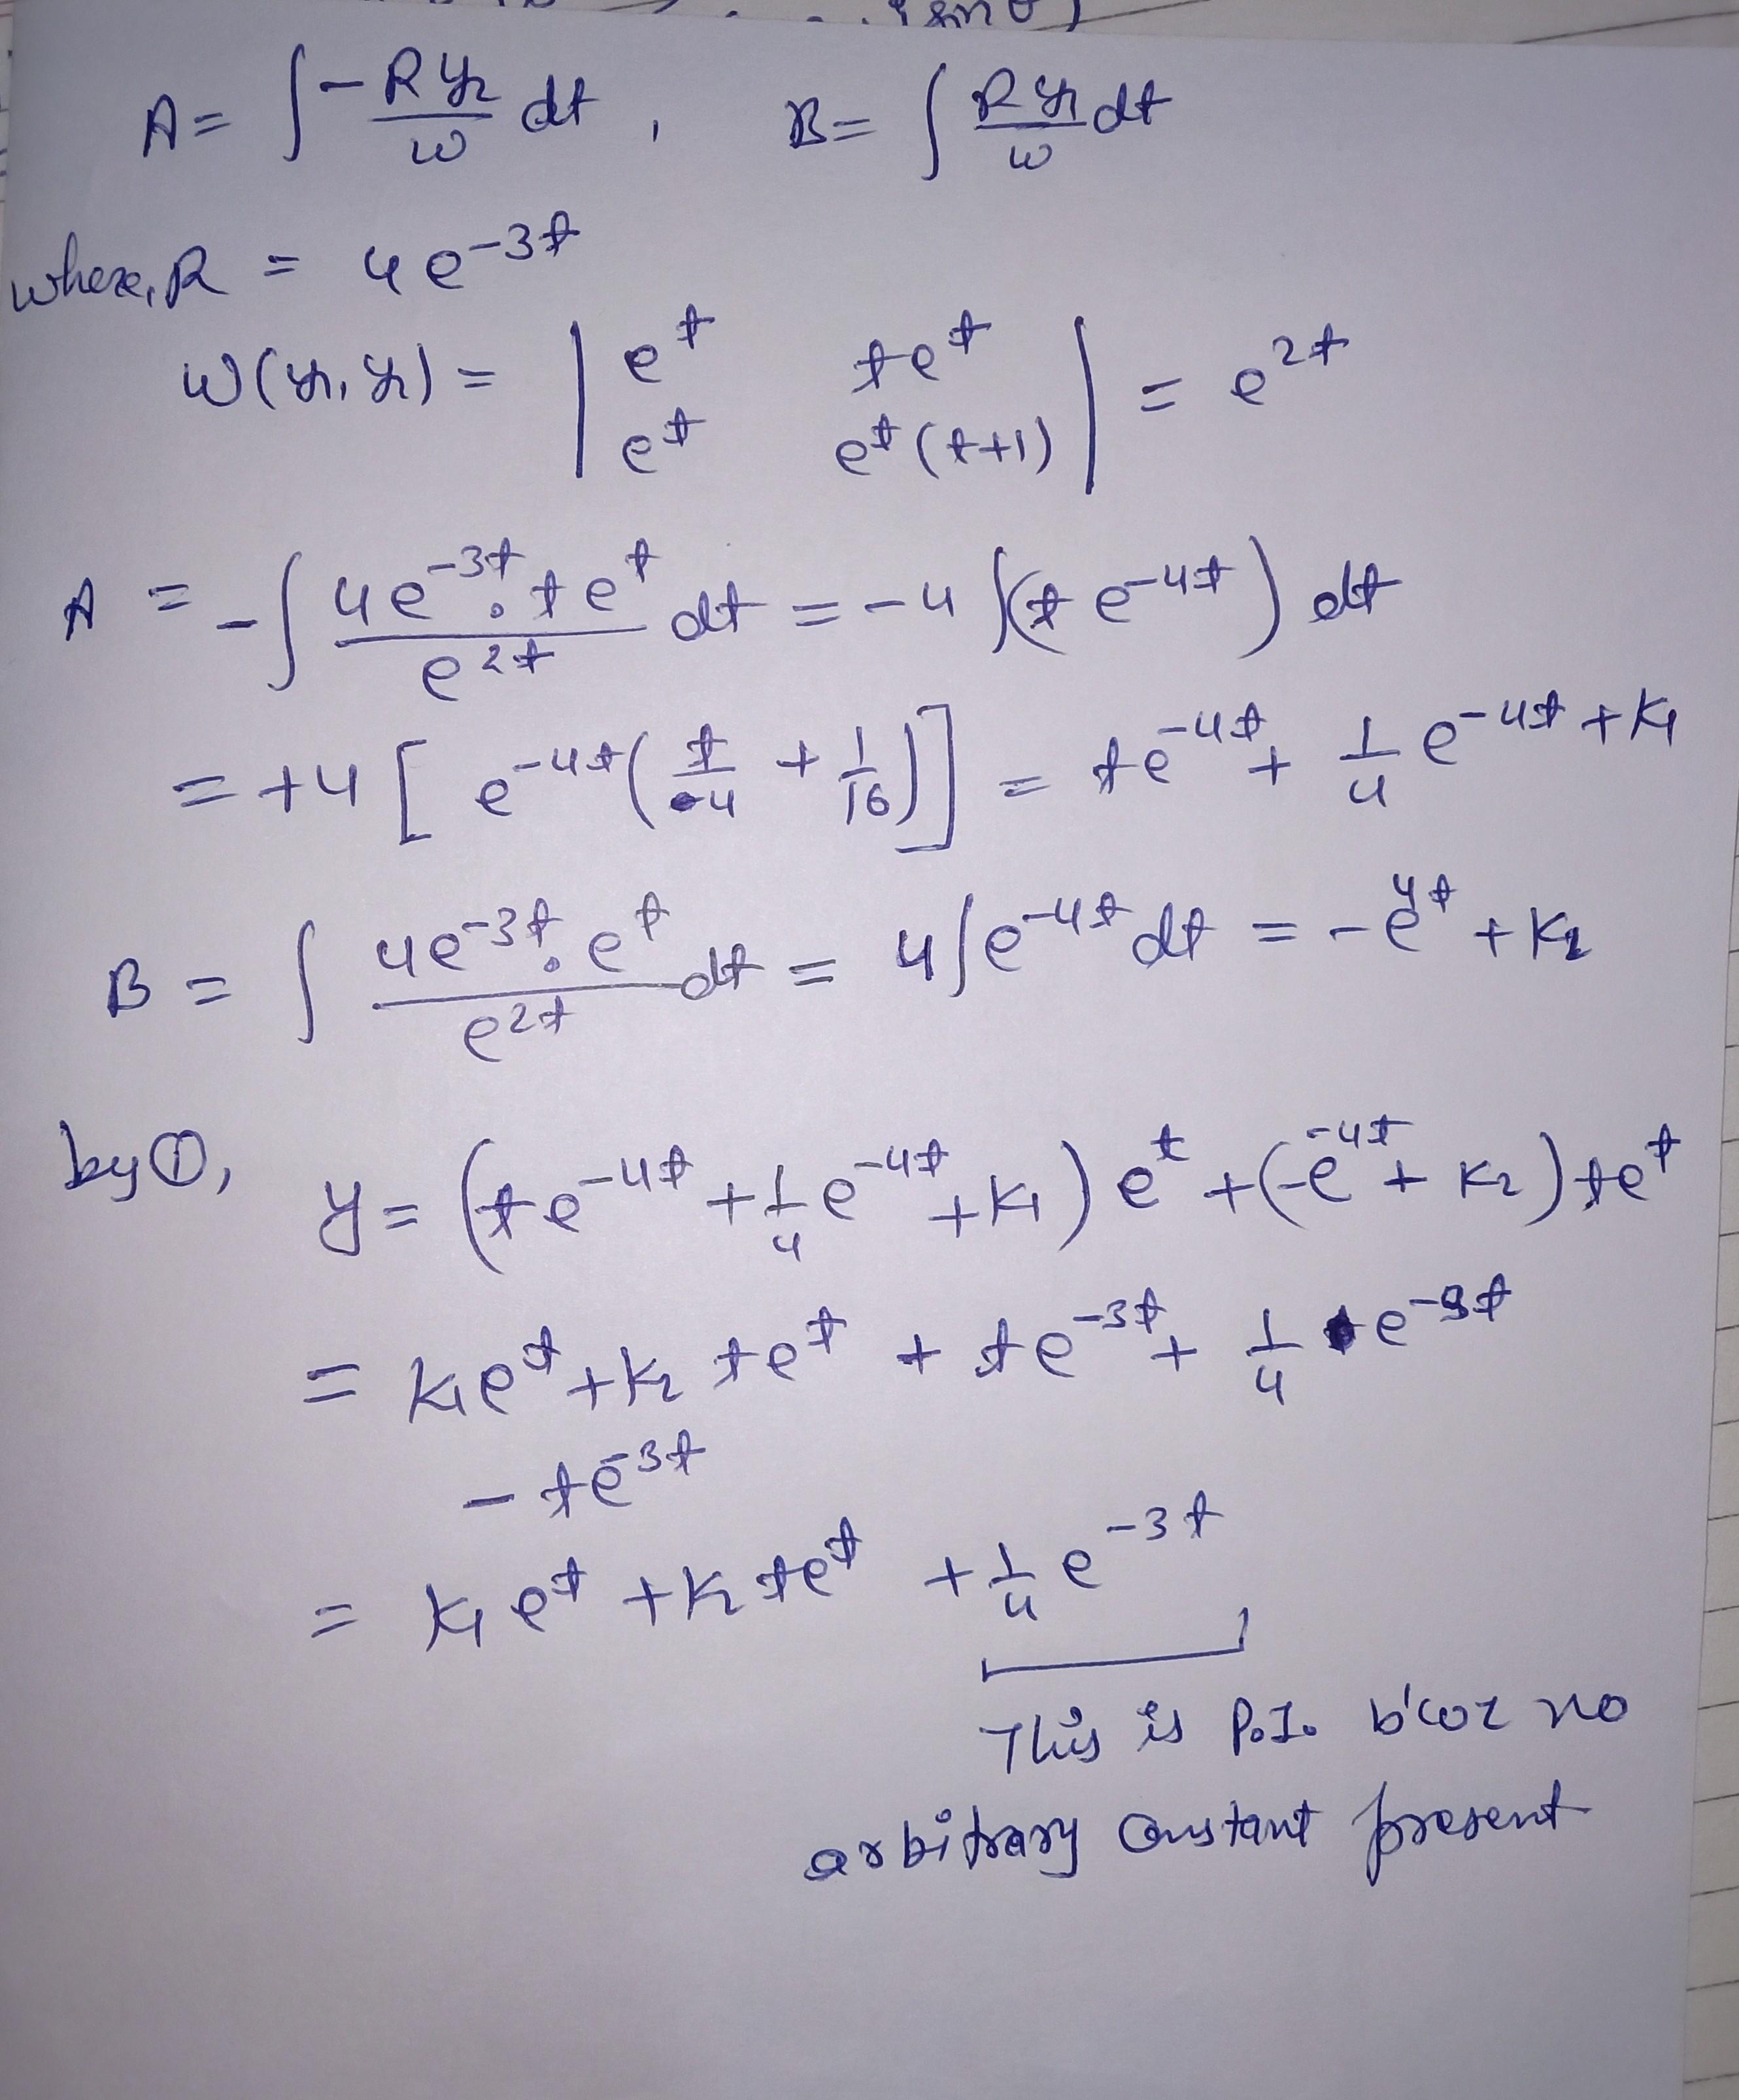 sin θ)
A = ∫ -R y₂/w dt , B = ∫ R y₁/w dt
where, R = 4e^-3t
w(y₁, y₂) = | e^t te^t | = e^2t
| e^t e^t(t+1) |
A = -∫ 4e^-3t . te^t / e^2t dt = -4 ∫(t e^-4t) dt
= +4 [ e^-4t ( t/4 + 1/16 ) ] = te^-4t + 1/4 e^-4t + K₁
B = ∫ 4e^-3t . e^t / e^2t dt = 4∫e^-4t dt = -e^4t + K₂
by ①, y = (te^-4t + 1/4 e^-4t + K₁) e^t + (-e^-4t + K₂) te^t
= K₁e^t + K₂ te^t + te^-3t + 1/4 e^-3t
- te^-3t
= K₁ e^t + K₂ te^t + 1/4 e^-3t
This is P.I. b'coz no
arbitrary constant present